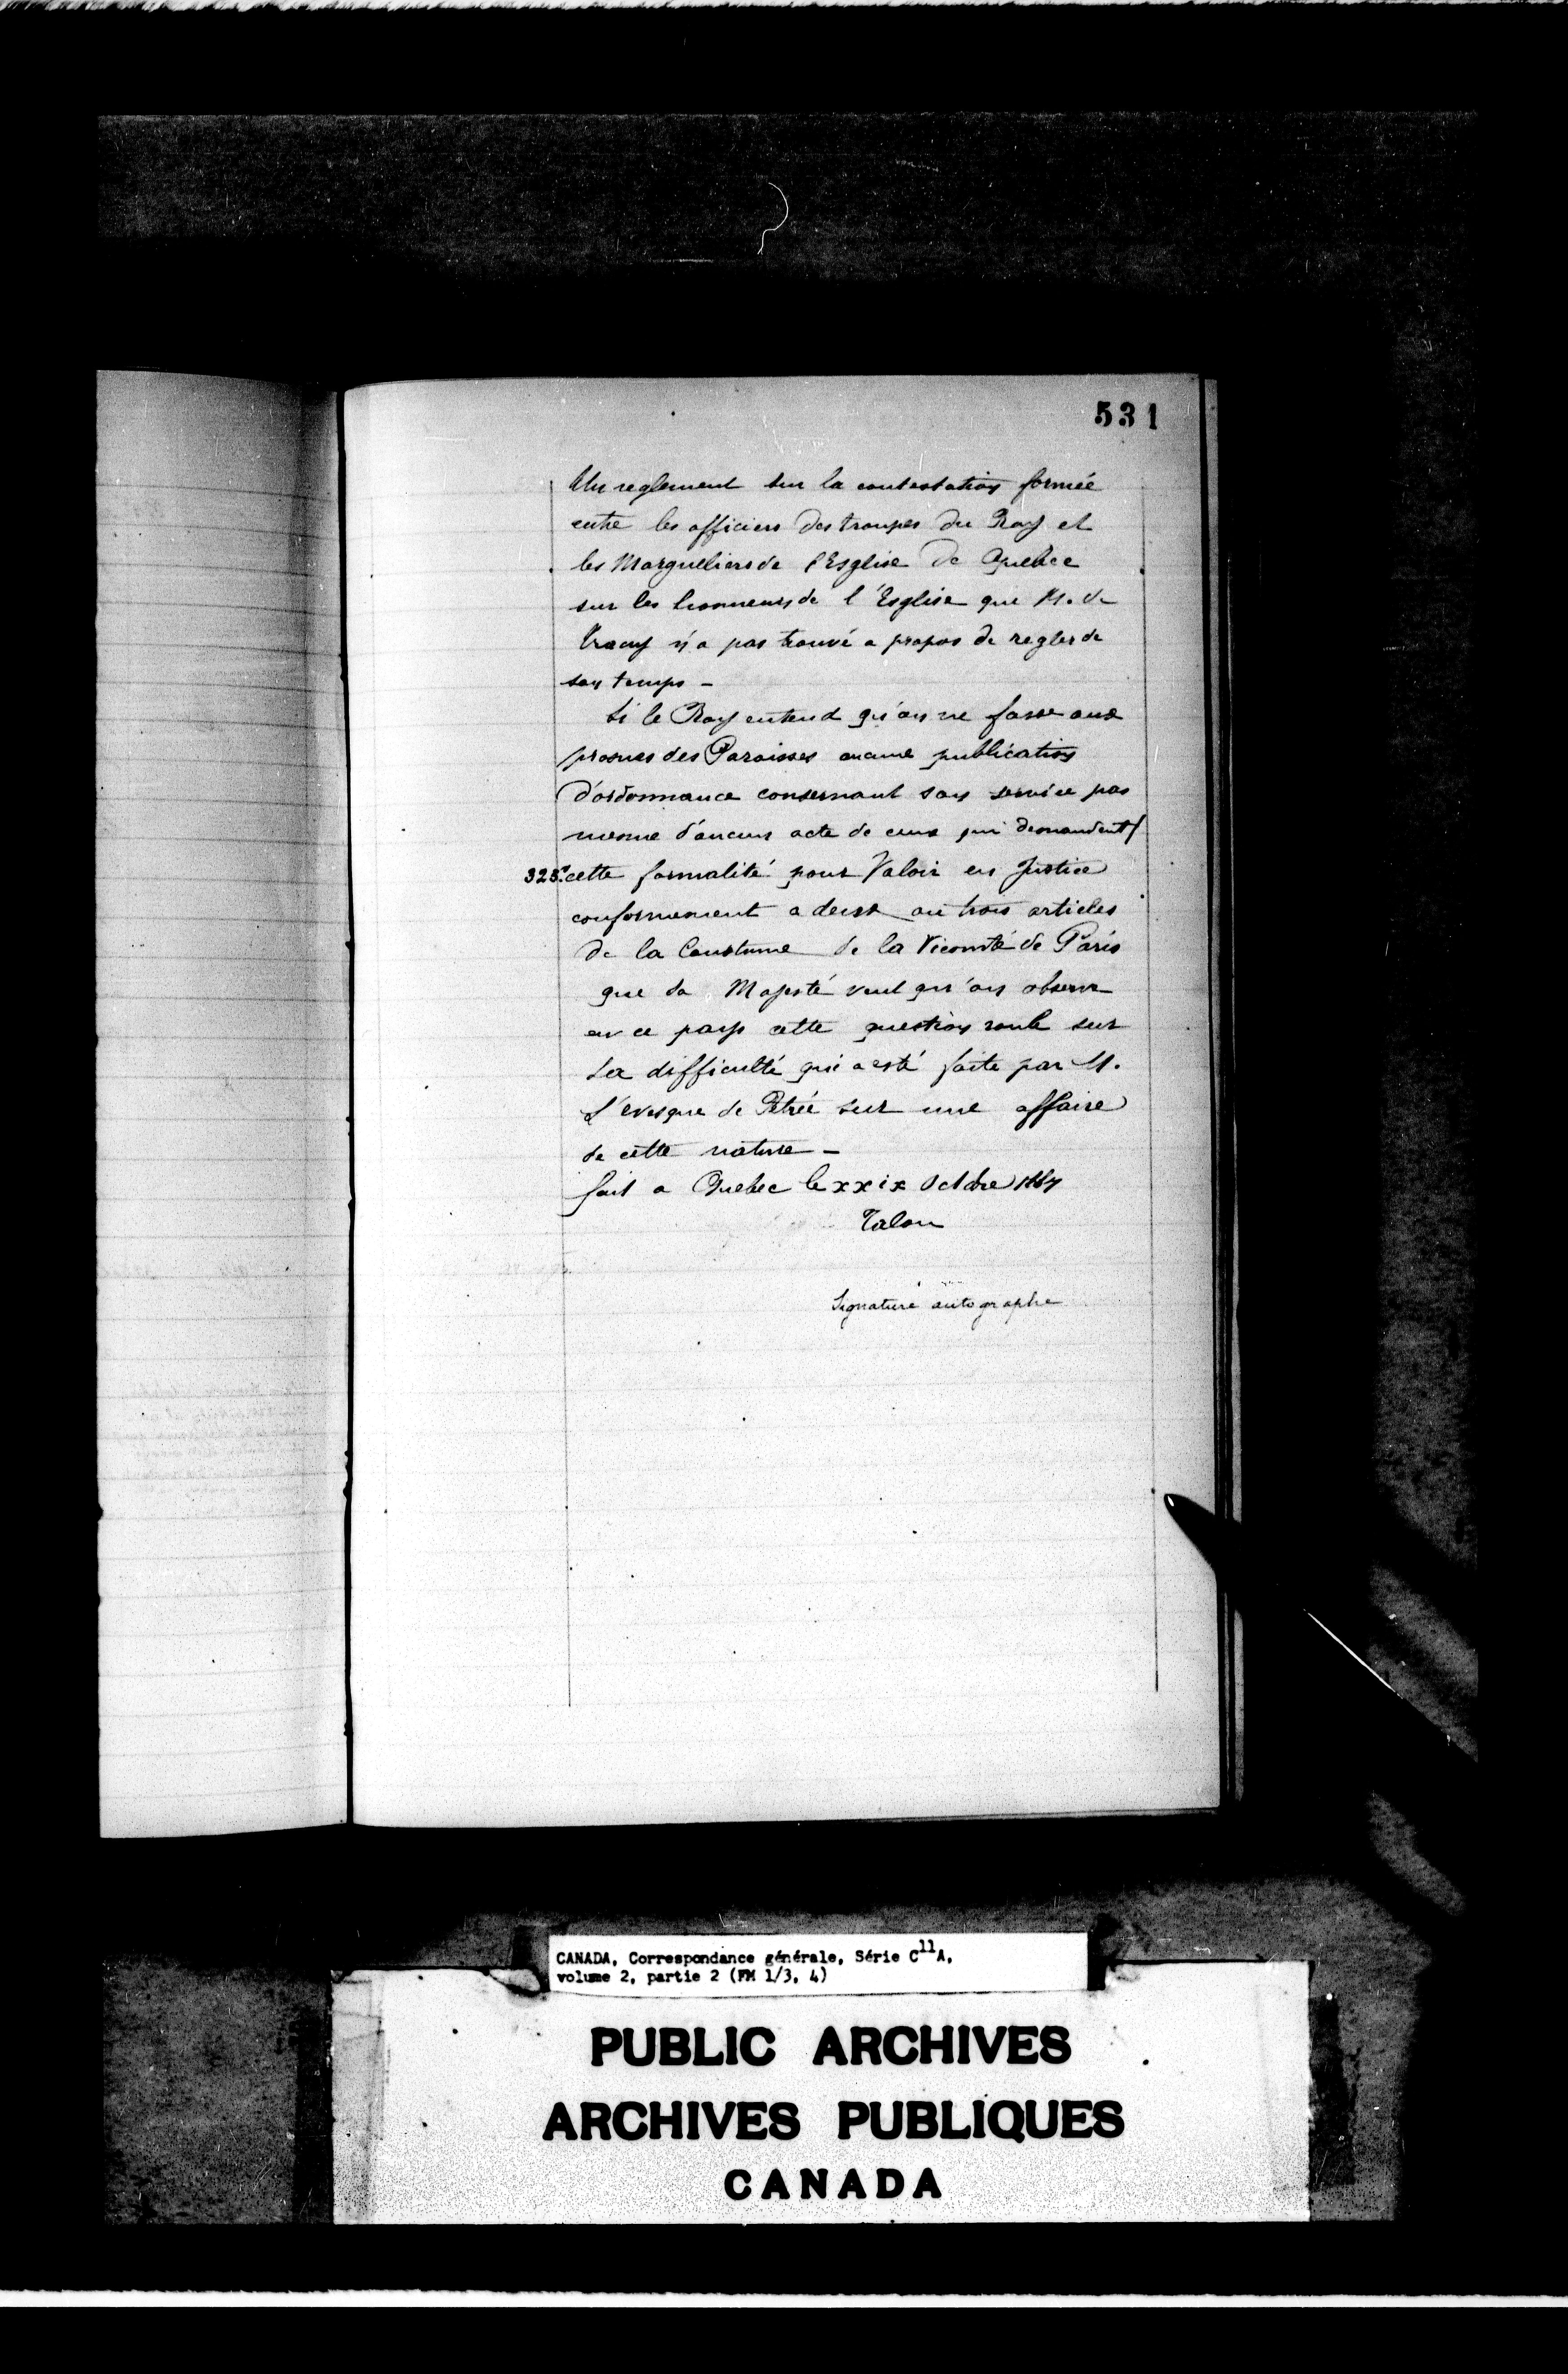 531
Un reglement sur la contestation formée
entre les officiers des troupes du Roy et
les Marguelliers de l'Esglise de Quebec
sur les honneurs de l'Esglise que M. de
Tracy n'a pas trouvé a propos de regler de
son temps -
Si le Roy entend qu'on ne fasse aux
prosnes des Paroisses aucune publication
d'ordonnance consernant son service pas
mesme d'aucun acte de ceux qui demandent/
325. cette formalité pour Valoir en Justice
conformement a deux ou trois articles
de la Coustume de la Vicomté de Paris
que Sa Majesté veut qu'on observe
en ce pays cette question roule sur
La difficulté qui a esté faite par M.
L'evesque de Petrée sur une affaire
de cette nature -
fait a Quebec le xxix Octobre 1667
Talon
Signature autographe
CANADA, Correspondance générale, Série C11A,
volume 2, partie 2 (FM 1/3, 4)
PUBLIC ARCHIVES
ARCHIVES PUBLIQUES
CANADA